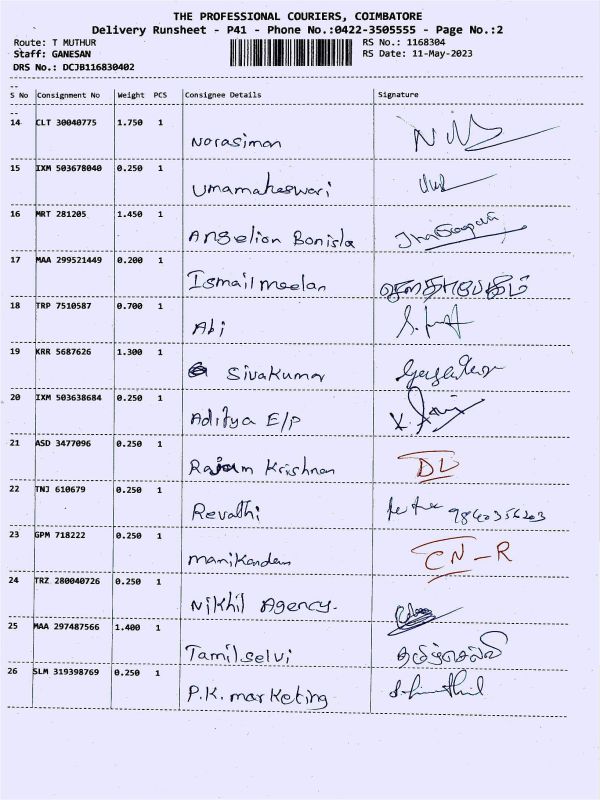 THE PROFESSIONAL COURIERS, COIMBATORE
Delivery Runsheet - P41 - Phone No.:0422-3505555 - Page No.:2
Route: T MUTHUR RS No.: 1168304
Staff: GANESAN RS Date: 11-May-2023
DRS No.: DCJB116830402
--
S No Consignment No Weight PCS Consignee Details Signature
--
14 CLT 30040775 1.750 1
Norasiman
15 IXM 503678040 0.250 1
Umamaheswari
16 MRT 281205 1.450 1
Angelion Bonisla
17 MAA 299521449 0.200 1
Ismail meelan
18 TRP 7510587 0.700 1
Abi
19 KRR 5687626 1.300 1
Sivakumar
20 IXM 503638684 0.250 1
Aditya E/P
21 ASD 3477096 0.250 1
Rajam Krishnan DL
22 TNJ 610679 0.250 1
Revathi 9840356203
23 GPM 718222 0.250 1
manikandan CN-R
24 TRZ 280040726 0.250 1
Nikhil Agency.
25 MAA 297487566 1.400 1
Tamilselvi தமிழ்செல்வி
26 SLM 319398769 0.250 1
P.K. marketing